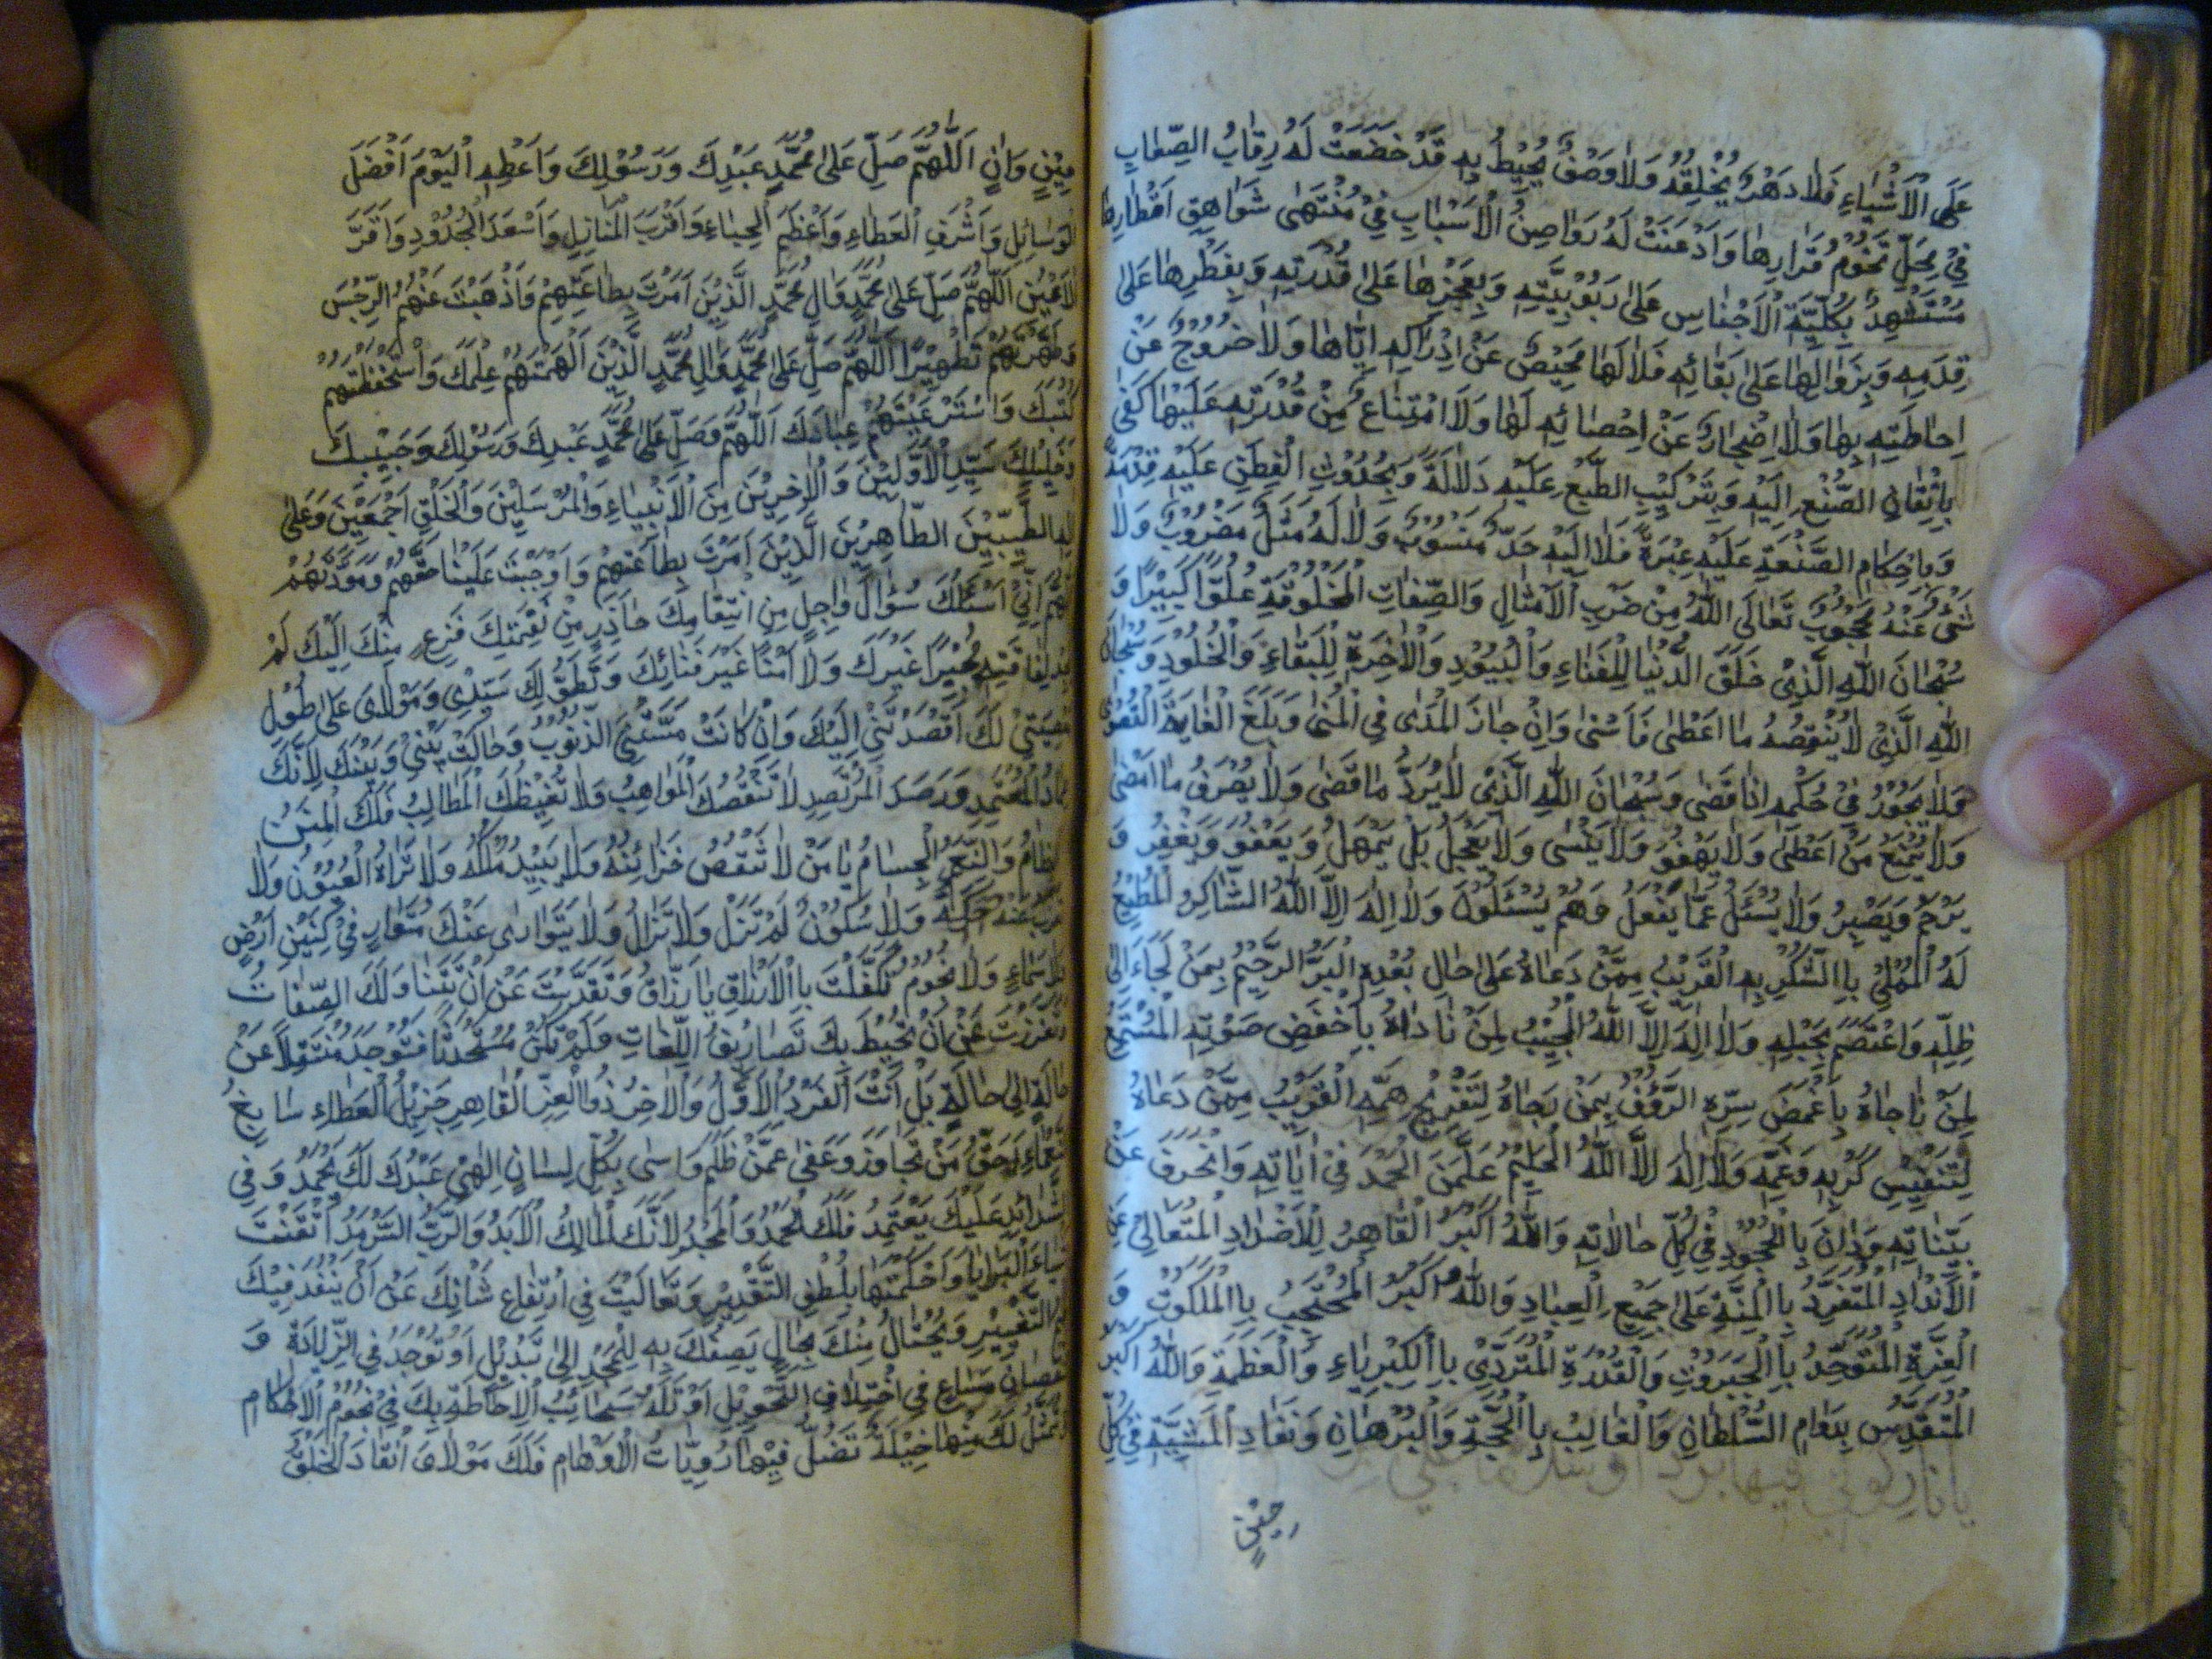 عَلَى الْاَشْيَاءِ فَلَا دَهْرٌ يُخْلِقُهُ وَلَا وَصْفٌ يُحِيْطُ بِهِ قَدْ خَضَعَتْ لَهُ رِقَابُ الصِّعَابِ
فِيْ مَحَلِّ تُخُوْمِ قَرَارِهَا وَاَذْعَنَتْ لَهُ رَوَاصِنُ الْاَسْبَابِ فِيْ مُنْتَهٰى شَوَاهِقِ اَقْطَارِهَا
مُسْتَشْهِدٌ بِكُلِّيَّةِ الْاَجْنَاسِ عَلٰى رَبُوْبِيَّتِهِ وَبِعَجْزِهَا عَلٰى قُدْرَتِهِ وَبِفَطْرِهَا عَلٰى
قِدَمِهِ وَبِزَوَالِهَا عَلٰى بَقَائِهِ فَلَا لَهَا مَحِيْصٌ عَنْ اِدْرَاكِهِ اِيَّاهَا وَلَا خُرُوْجٌ عَنْ
اِحَاطَتِهِ بِهَا وَلَا احْتِجَابٌ عَنْ اِحْصَائِهِ لَهَا وَلَا امْتِنَاعٌ مِنْ قُدْرَتِهِ عَلَيْهَا كَفٰى
بِاِتْقَانِ الصُّنْعِ اِلَيْهِ وَبِتَرْكِيْبِ الطَّبْعِ عَلَيْهِ دَلَالَةً وَبِحُدُوْثِ الْفِطَنِ عَلَيْهِ قِدْمَةً
وَبِاِحْكَامِ الصَّنْعَةِ عَلَيْهِ عِبْرَةً فَلَا اِلَيْهِ حَدٌّ مَنْسُوْبٌ وَلَا لَهُ مَثَلٌ مَضْرُوْبٌ وَلَا
شَئٌ عَنْهُ مَحْجُوْبٌ تَعَالَى اللّٰهُ مِنْ ضَرْبِ الْاَمْثَالِ وَالصِّفَاتِ الْمَخْلُوْقَةِ عُلُوًّا كَبِيْرًا وَ
سُبْحَانَ اللّٰهِ الَّذِيْ خَلَقَ الدُّنْيَا لِلْفَنَاءِ وَالْبُيُوْدِ وَالْاٰخِرَةَ لِلْبَقَاءِ وَالْخُلُوْدِ وَسُبْحَانَ
اللّٰهِ الَّذِيْ لَا يُنْقِصُهُ مَا اَعْطٰى فَاَسْنٰى وَاِنْ جَازَ الْمَدٰى فِي الْمُنٰى وَبَلَغَ الْغَايَةَ الْقُصْوٰى
وَلَا يَجُوْرُ فِيْ حُكْمِهِ اِذَا قَضٰى وَسُبْحَانَ اللّٰهِ الَّذِيْ لَا يُرَدُّ مَا قَضٰى وَلَا يُصْرَفُ مَا اَمْضٰى
وَلَا يُمْنَعُ مَنْ اَعْطٰى وَلَا يَهْفُوْ وَلَا يَنْسٰى وَلَا يَعْجَلُ بَلْ يُمْهِلُ وَيَعْفُوْ وَيَغْفِرُ وَ
يَرْحَمُ وَيَصْبِرُ وَلَا يُسْئَلُ عَمَّا يَفْعَلُ وَهُمْ يُسْئَلُوْنَ وَلَا اِلٰهَ اِلَّا اللّٰهُ الشَّاكِرُ الْمُطِيْعُ
لَهُ الْمُمْلِيْ بِالشَّكْرِ بِهِ الْقَرِيْبُ مِمَّنْ دَعَاهُ عَلٰى حَالِ بُعْدِهِ الْبَرُّ الرَّحِيْمُ بِمَنْ لَجَاءَ اِلٰى
ظِلِّهِ وَاعْتَصَمَ بِحَبْلِهِ وَلَا اِلٰهَ اِلَّا اللّٰهُ الْمُجِيْبُ لِمَنْ نَادَاهُ بِاَخْفَضِ صَوْتِهِ الْمُسْتَمِعُ
لِمَنْ نَاجَاهُ بِاَغْمَضِ سِرِّهِ الرَّؤُفُ بِمَنْ رَجَاهُ لِتَفْرِيْجِ هَمِّهِ الْقَرِيْبُ مِمَّنْ دَعَاهُ
لِتَنْفِيْسِ كَرْبِهِ وَغَمِّهِ وَلَا اِلٰهَ اِلَّا اللّٰهُ الْحَلِيْمُ عَمَّنْ اَلْحَدَ فِيْ اٰيَاتِهِ وَانْحَرَفَ عَنْ
بَيِّنَاتِهِ وَدَانَ بِالْجُحُوْدِ فِيْ كُلِّ حَالَاتِهِ وَاللّٰهُ اَكْبَرُ الْقَاهِرُ لِلْاَضْدَادِ الْمُتَعَالِيْ عَنِ
الْاَنْدَادِ الْمُتَفَرِّدُ بِالْمِنَّةِ عَلٰى جَمِيْعِ الْعِبَادِ وَاللّٰهُ اَكْبَرُ الْمُحْتَجِبُ بِالْمَلَكُوْتِ وَ
الْعِزَّةِ الْمُتَوَحِّدُ بِالْجَبَرُوْتِ وَالْقُدْرَةِ الْمُتَرَدِّيْ بِالْكِبْرِيَاءِ وَالْعَظَمَةِ وَاللّٰهُ اَكْبَرُ
الْمُتَقَدِّسُ بِدَوَامِ السُّلْطَانِ وَالْغَالِبُ بِالْحُجَّةِ وَالْبُرْهَانِ وَنَفَادِ الْمَشِيَّةِ فِيْ كُلِّ
حِيْنٍ
مِيْنٍ وَاٰنٍ اَللّٰهُمَّ صَلِّ عَلٰى مُحَمَّدٍ عَبْدِكَ وَرَسُوْلِكَ وَاَعْطِهِ الْيَوْمَ اَفْضَلَ
الْوَسَائِلِ وَاَشْرَفَ الْعَطَاءِ وَاَعْظَمَ الْحِبَاءِ وَاَقْرَبَ الْمَنَازِلِ وَاَسْعَدَ الْجُدُوْدِ وَاَقَرَّ
الْاَعْيُنِ اَللّٰهُمَّ صَلِّ عَلٰى مُحَمَّدٍ وَاٰلِ مُحَمَّدٍ الَّذِيْنَ اَمَرْتَ بِطَاعَتِهِمْ وَاَذْهَبْتَ عَنْهُمُ الرِّجْسَ
وَطَهَّرْتَهُمْ تَطْهِيْرًا اَللّٰهُمَّ صَلِّ عَلٰى مُحَمَّدٍ وَاٰلِ مُحَمَّدٍ الَّذِيْنَ اَلْهَمْتَهُمْ عِلْمَكَ وَاسْتَحْفَظْتَهُمْ
كُتُبَكَ وَاسْتَرْعَيْتَهُمْ عِبَادَكَ اَللّٰهُمَّ وَصَلِّ عَلٰى مُحَمَّدٍ عَبْدِكَ وَرَسُوْلِكَ وَحَبِيْبِكَ
وَخَلِيْلِكَ سَيِّدِ الْاَوَّلِيْنَ وَالْاٰخِرِيْنَ مِنَ الْاَنْبِيَاءِ وَالْمُرْسَلِيْنَ وَالْخَلْقِ اَجْمَعِيْنَ وَعَلٰى
اٰلِهِ الطَّيِّبِيْنَ الطَّاهِرِيْنَ الَّذِيْنَ اَمَرْتَ بِطَاعَتِهِمْ وَاَوْجَبْتَ عَلَيْنَا حَقَّهُمْ وَمَوَدَّتَهُمْ
اِنِّيْ اَسْئَلُكَ سُؤَالَ وَاجِلٍ مِنِ انْتِقَامِكَ حَاذِرٍ مِنْ نَقِمَتِكَ فَزِعٍ مِنْكَ اِلَيْكَ لَمْ
يَجِدْ لِفَاقَتِهِ مُجِيْرًا غَيْرَكَ وَلَا اَمْنًا غَيْرَ فَنَائِكَ وَتَطَوُّلِكَ سَيِّدِيْ وَمَوْلَايَ عَلٰى طُوْلِ
مَعْصِيَتِيْ لَكَ اَقْصُدُنِيْ اِلَيْكَ وَاِنْ كَانَتْ الذُّنُوْبُ وَحَالَتْ بَيْنِيْ وَبَيْنَكَ لِاَنَّكَ
عِمَادُ الْمُعْتَمِدِ وَرَصَدُ الْمُرْتَصِدِ لَا تَنْقُصُكَ الْمَوَاهِبُ وَلَا تَغِيْظُكَ الْمَطَالِبُ فَلَكَ الْمِنَنُ
الْعِظَامُ وَالنِّعَمُ الْجِسَامُ يَا مَنْ لَا تَنْقُصُ خَزَائِنُهُ وَلَا يَبِيْدُ مُلْكُهُ وَلَا تَرَاهُ الْعُيُوْنُ وَلَا
تَعْزُبُ عَنْهُ حَرَكَةٌ وَلَا سُكُوْنٌ لَمْ تَزَلْ وَلَا تَزَالُ وَلَا يَتَوَارٰى عَنْكَ مُتَوَارٍ فِيْ كَنِيْنِ اَرْضٍ
وَلَا سَمَاءٍ وَلَا تُخُوْمٍ تَكَفَّلْتَ بِالْاَرْزَاقِ يَا رَزَّاقُ وَتَقَدَّسْتَ عَنْ اَنْ تَتَنَاوَلَكَ الصِّفَاتُ
وَتَعَزَّزْتَ عَنْ اَنْ تُحِيْطَ بِكَ تَصَارِيْفُ اللُّغَاتِ وَلَمْ تَكُنْ مُسْتَحْدَثًا فَتُوْجَدَ مُنْتَقِلًا عَنْ
حَالَةٍ اِلٰى حَالَةٍ بَلْ اَنْتَ الْفَرْدُ الْاَوَّلُ وَالْاٰخِرُ ذُو الْعِزِّ الْقَاهِرِ جَزِيْلُ الْعَطَاءِ سَابِغُ
النَّعْمَاءِ اَحَقُّ مَنْ تَجَاوَزَ وَعَفٰى عَمَّنْ ظَلَمَ وَاَسٰى بِكُلِّ لِسَانٍ اِلٰهِيْ عَبْدُكَ لَكَ يُحْمَدُ وَفِي
الشَّدَائِدِ عَلَيْكَ يَعْتَمِدُ فَلَكَ الْحَمْدُ وَالْمَجْدُ لِاَنَّكَ الْمَالِكُ الْاَبَدُ وَالرَّبُّ السَّرْمَدُ اَتْقَنْتَ
اِنْشَاءَ الْبَرَايَا وَاَحْكَمْتَهَا بِلُطْفِ التَّقْدِيْرِ وَتَعَالَيْتَ فِي ارْتِفَاعِ شَانِكَ عَنْ اَنْ يَنْفُذَ فِيْكَ
التَّغْيِيْرِ وَيُحْتَالُ مِنْكَ بِحَالٍ يَصِفُكَ بِهِ الْمُلْحِدُ اِلٰى تَبْدِيْلٍ اَوْ تُوْجَدُ فِي الزِّيَادَةِ وَ
النُّقْصَانِ مَسَاغٌ فِي اخْتِلَافِ التَّحْوِيْلِ اَوْ سَحَائِبُ الْاِحَاطَةِ بِكَ فِيْ تُخُوْمِ الْاَحْكَامِ
لَكَ مِنْهَا تَضِلُّ فِيْهَا رَوِيَّاتُ الْاَوْهَامِ فَلَكَ مَوْلَايَ انْقَادَ الْخَلْقُ